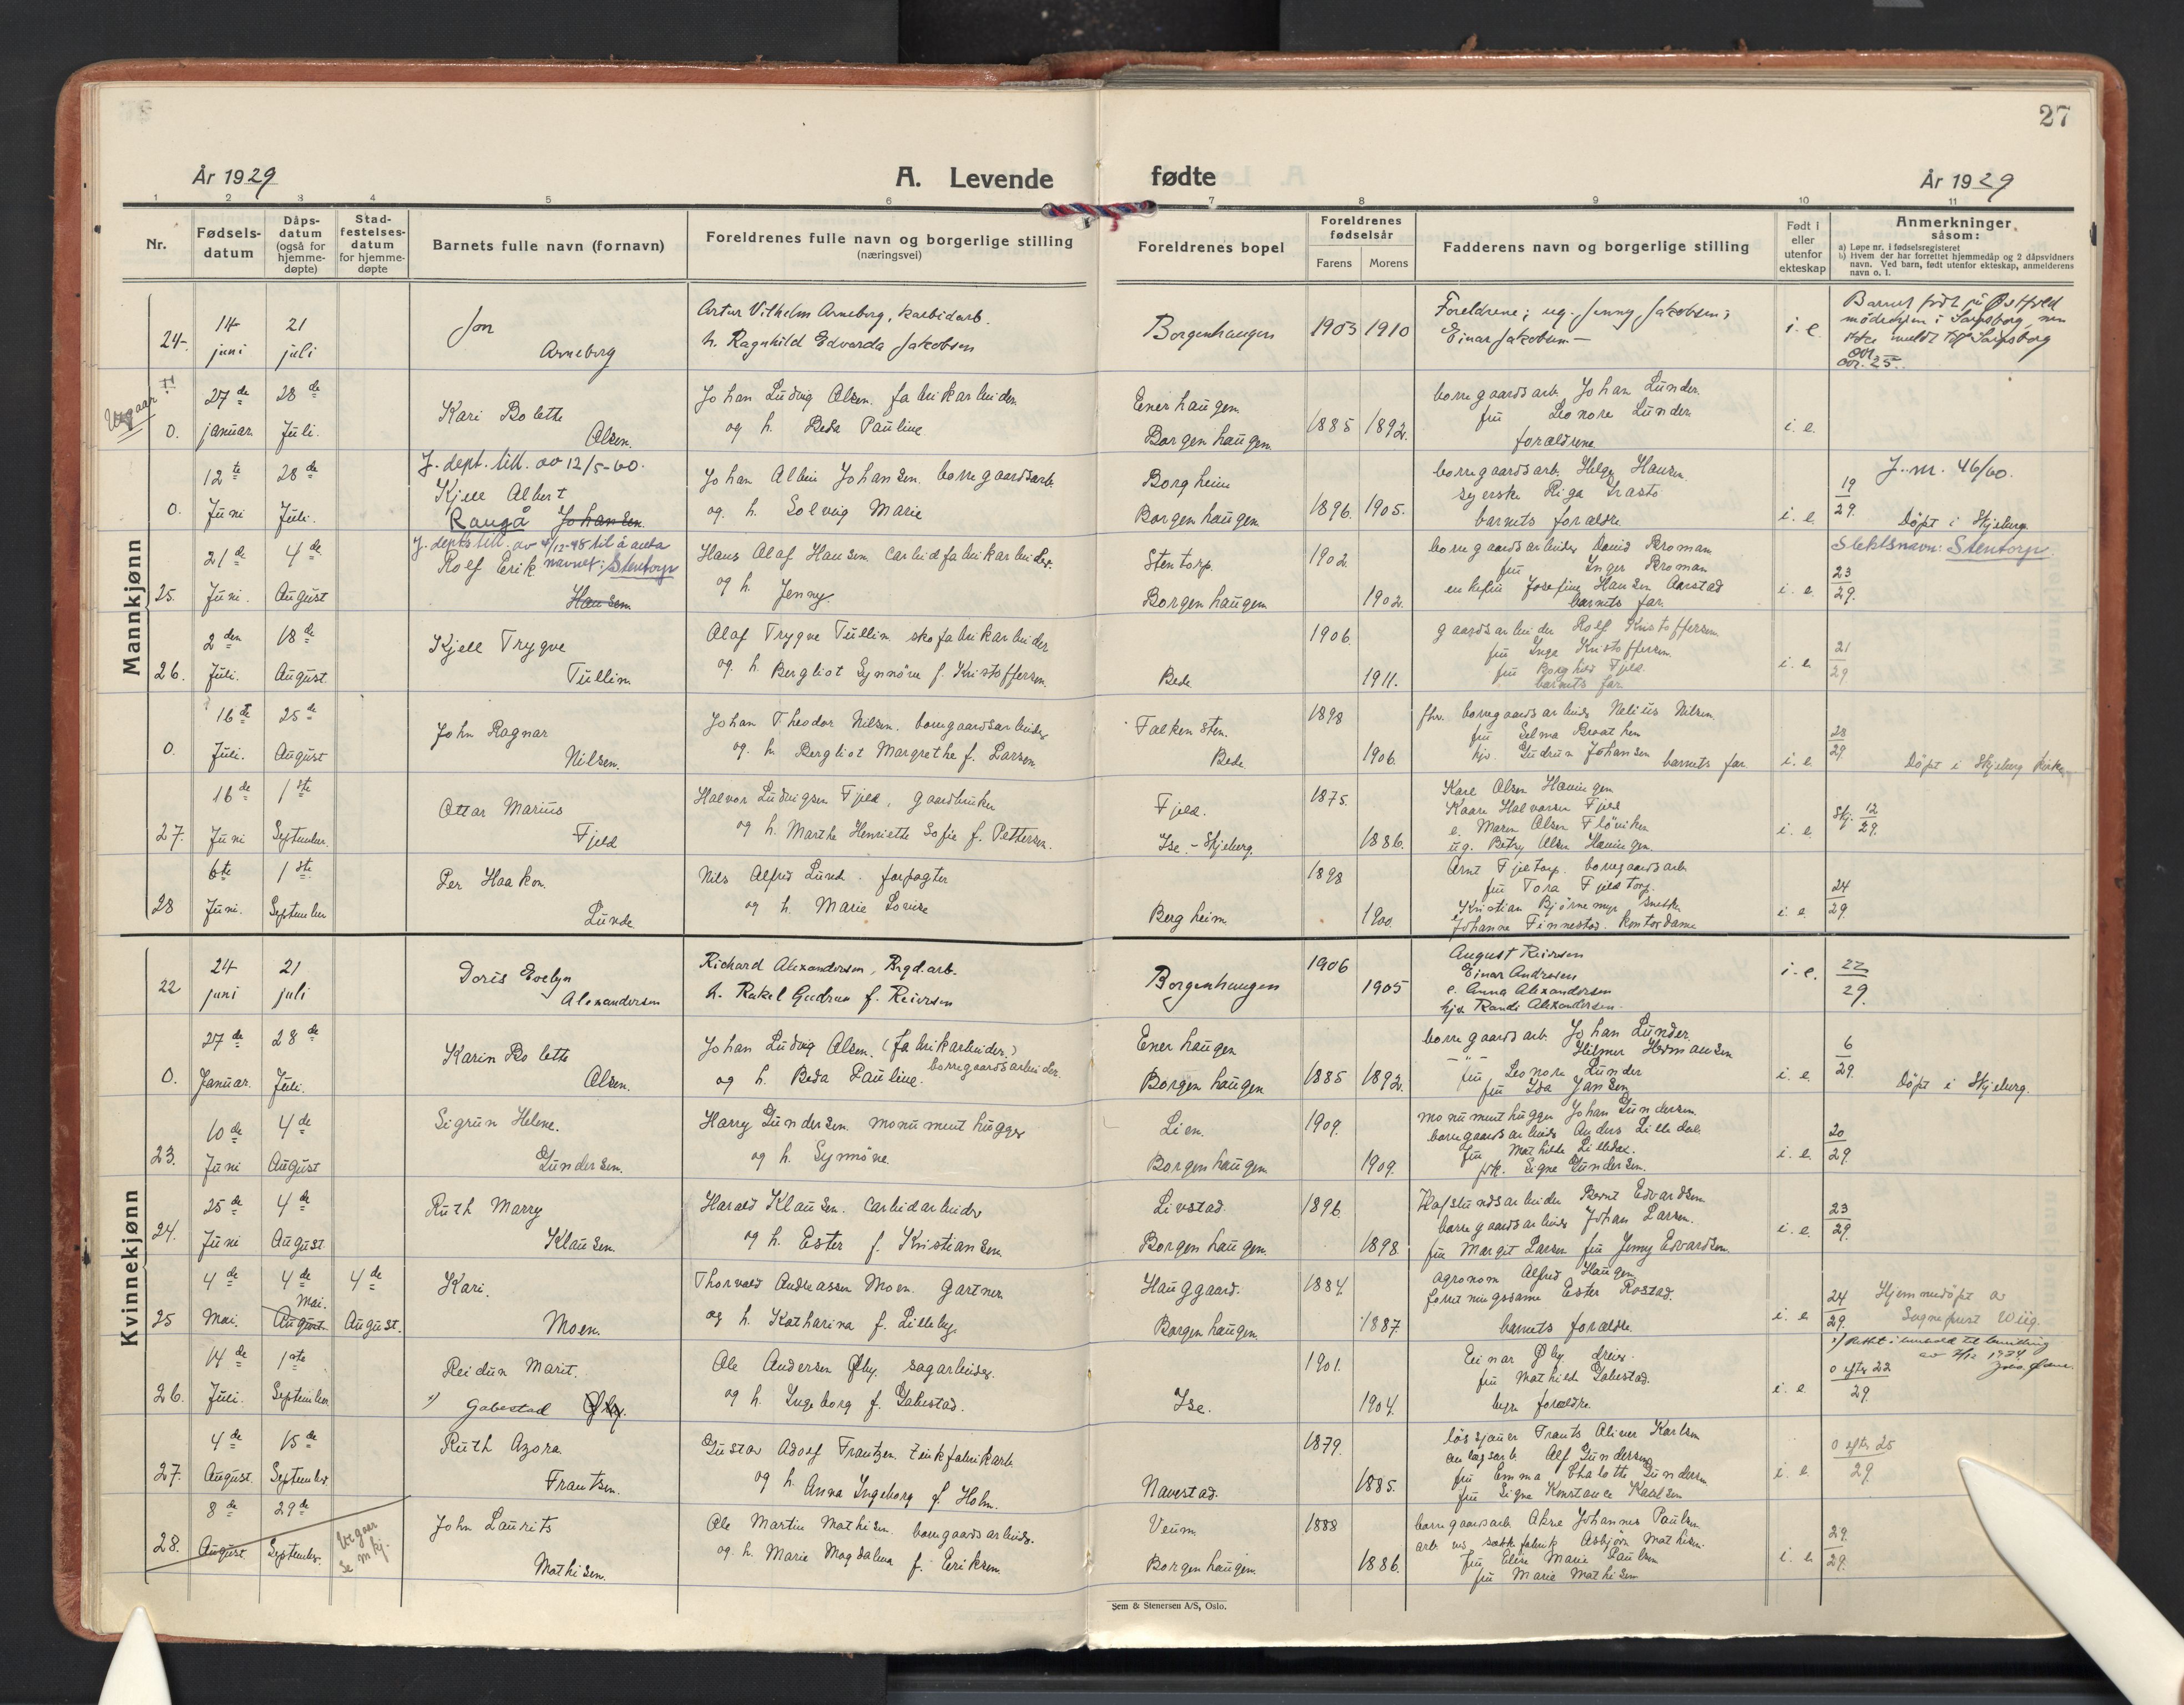 27
År 1929
A. Levende fødte
År 1929
1 2 3 4 5 6 7 8 9 10 11
Nr.
Fødsels-datum
Dåps-datum (også for hjemme-døpte)
Stad-festelses-datum for hjemme-døpte
Barnets fulle navn (fornavn)
Foreldrenes fulle navn og borgerlige stilling (næringsvei)
Foreldrenes bopel
Foreldrenes fødselsår
Farens Morens
Fadderens navn og borgerlige stilling
Født i eller utenfor ekteskap
Anmerkninger, såsom:
a) Løpe nr. i fødselsregisteret
b) Hvem der har forrettet hjemmedåp og 2 dåpsvidners navn. Ved barn, født utenfor ekteskap, anmelderens navn o. l.
Mannkjønn
24. 14 juni 21 juli
Jon
Arneberg
Artur Vilhelm Arneberg, karbidarb.
h. Ragnhild Edvarda Jakobsen
Borgenhaugen
1903 1910
Foreldrene; ug. Jenny Jakobsen;
Einar Jakobsen —
i. e.
Barnet født på Østfold
mødrehjem i Sarpsborg, men
ikke meldt til Sarpsborg
Utgaar
0. 27de januar. 28de Juli.
Kari Bolette
Olsen.
Johan Ludvig Olsen. fabrikarbeider
og h. Beda Pauline
Enerhaugen
Borgenhaugen
1885 1892.
borregaardsarb. Johan Lunder.
fru Leonore Lunder
forældrene
i. e.
0. 12te Juni 28de Juli.
J. dept. till. av 12/5-60.
Kjell Albert
Raugå Johansen.
Johan Albin Johansen. borregaardsarb.
og. h. Solveig Marie
Borgheim
Borgenhaugen
1896. 1905.
borregaardsarb. Helge Hansen
syerske Riga Grasto
barnets forældre
i. e.
19/29.
J. nr. 46/60.
Døpt i Skjeberg.
25. 21de Juni. 4de August
J. depts till. av 4/12-48 til å anta
Rolf Erik navnet: Stentorp
Hansen
Hans Olaf Hansen. Carbidfabrikarbeider.
og h. Jenny.
Stentorp.
Borgenhaugen
1902. 1902.
borregaardsarbeider David Broman
fru Inger Broman
enkefru Josefine Hansen Aarstad
barnets far.
i. e.
23/29.
Slektsnavn: Stentorp.
26. 2den Juli. 18de August
Kjell Trygve
Tullin.
Olaf Trygve Tullin. skofabrikarbeider
og. h. Bergliot Synnøve f. Kristoffersen.
Bede
1906. 1911.
gaardsarbeider Rolf Kristoffersen
fru Inga Kristoffersen.
fru Borghild Fjeld.
barnets far
i. e.
21/29
0. 16de Juli. 25de August
John Ragnar
Nilsen.
Johan Theodor Nilsen. borregaardsarbeider
og. h. Bergliot Margrethe f. Larsen.
Falkensten.
Bede.
1898 1906.
fhv. borregaardsarbeider Nelius Nilsen.
fru Selma Braathen
hjv. Gudrun Johansen barnets far
i. e.
28/29.
Døpt i Skjeberg kirke.
27. 16de Juni 1ste September.
Ottar Marius
Fjeld
Halvor Ludvigsen Fjeld, gaardbruker
og h. Marthe Henriette Sofie f. Pettersen.
Fjeld.
Ise. - Skjeberg.
1875. 1886.
Karl Olsen Hauingen
Kaare Halvorsen Fjeld
e. Maren Olsen
ug. Betzy Olsen Hauingen.
i. e.
Skj. 12/29.
28 6te Juni. 1ste September
Per Haakon.
Lunde
Nils Alfred Lund. forpagter
og h. Marie Lovise
Bergheim.
1898 1900.
Arnt Fjeltorp. borregaardsarb.
fru Tora Fjeldtorp.
Kristian Bjørnemyr snekker
Johanne Finnestad. Kontordame
i. e.
24/29.
Kvinnekjønn
22 24 juni 21 juli
Doris Evelyn
Alexandersen
Richard Alexandersen, Brgd.arb.
h. Rakel Gudrun f. Reiersen
Borgenhaugen
1906 1905
August Reiersen
Einar Andresen
e. Anna Alexandersen
hjv. Randi Alexandersen.
i. e.
22/29.
0. 27de Januar. 28de Juli.
Karin Bolette
Olsen.
Johan Ludvig Olsen. (fabrikarbeider.)
og h. Beda Pauline. borregaardsarbeider.
Enerhaugen
Borgenhaugen
1885 1892.
borregaardsarb. Johan Lunder.
— " — Hilmer Hermansen
fru Leonore Lunder
fru Ida Jansen
i. e.
6/29.
Døpt i Skjeberg.
23. 10de Juni 4de August
Sigrun Helene.
Gundersen.
Harry Gundersen. monumenthugger
og h. Synnøve.
Lien.
Borgenhaugen
1909. 1909.
monumenthugger Johan Gundersen.
borregaardsarbeider Anders Lilledal.
fru Mathilde Lilledal.
frk. Signe Gundersen.
i. e.
20/29.
24. 25de Juni 4de August
Ruth Marry
Klausen.
Harald Klausen. Carbidarbeider
og h. Ester f. Kristiansen.
Livstad.
Borgenhaugen.
1896. 1898
Hafslundsarbeider Bernt Edvardsen
borregaardsarbeider Johan Larsen.
fru Margit Larsen fru Jenny Edvardsen.
i. e.
23/29.
25 4de Mai. 4de Mai. August. 4de August.
Kari.
Moen.
Thorvald Andreassen Moen. Gartner
og h. Katharina f. Lilleby.
Hauggaard.
Borgenhaugen.
1884. 1887.
agronom Alfred Haugen
forretningsdame Ester Rostad.
barnets forældre.
i. e.
24/29.
Hjemmedøpt av
Sogneprest Wiig.
26. 14de Juli. 1ste September
Reidun Marit.
x) Gabestad Øby.
Ole Andersen Øby. sagarbeider.
og h. Ingeborg f. Gabestad.
Ise.
1901. 1904.
Einar Øby dreier.
fru Mathilde Gabestad.
begge forældre.
i. e.
0 efter 22/29.
x) Rettet i henhold til bevilling
27. 4de August. 15de September.
Ruth Azora.
Frantsen.
Gustav Adolf Frantzen. zinkfabrikarb.
og h. Anna Ingeborg f. Holm.
Navestad.
1879. 1885.
løssjauer Frants Oliver Karlsen
anlægsarb. Alf Gundersen
fru Emma Chalotte Gundersen
fru Signe Konstance Karlsen
i. e.
0 efter 25/29.
28. 8de August. 29de September.
Utgaar
Se mkj.
John Laurits
Mathisen.
Ole Martin Mathisen. borregaardsarbeider.
og. h. Marie Magdalena f. Eriksen.
Veum.
Borgenhaugen.
1888 1886.
borregaardsarb. Aksel Johannes Paulsen.
arb. ved sækkefabrik Asbjørn Mathisen.
fru Elise Marie Paulsen
fru Marie Mathisen
i. e.
29/29.
Sem & Stenersen A/S, Oslo.